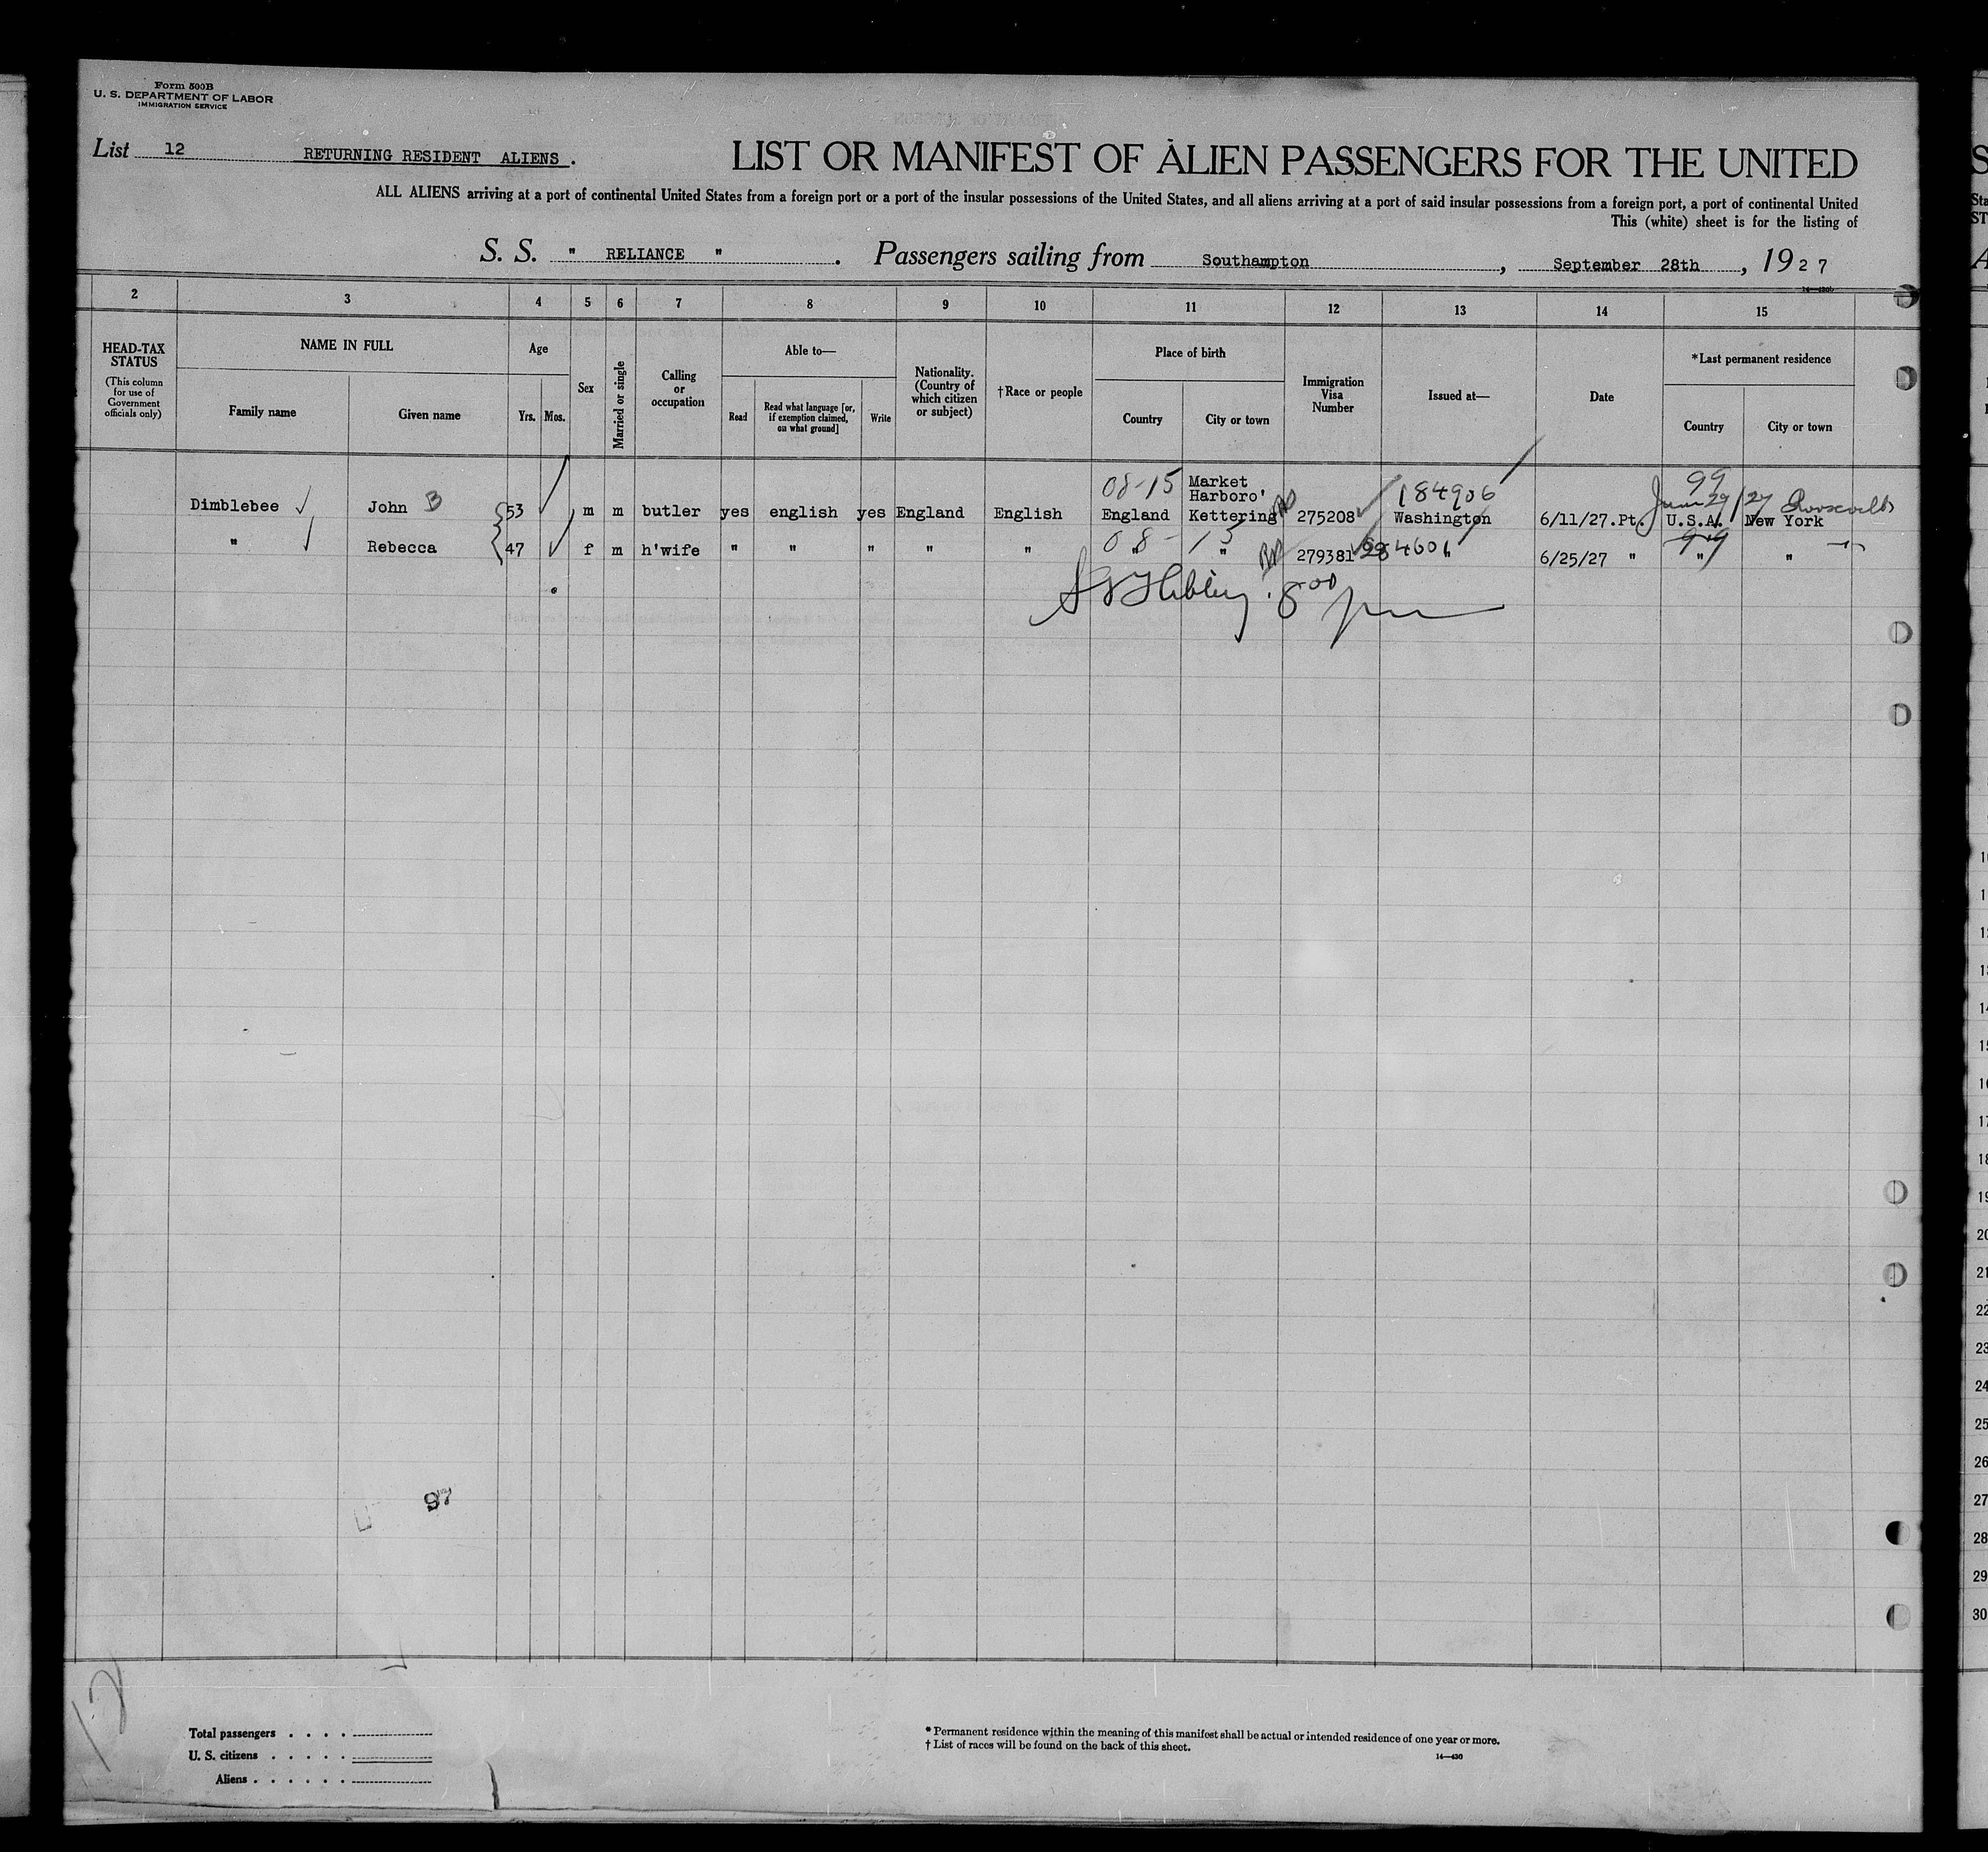 Form 500B
U. S. DEPARTMENT OF LABOR
IMMIGRATION SERVICE
List 12 RETURNING RESIDENT ALIENS. LIST OR MANIFEST OF ALIEN PASSENGERS FOR THE UNITED
ALL ALIENS arriving at a port of continental United States from a foreign port or a port of the insular possessions of the United States, and all aliens arriving at a port of said insular possessions from a foreign port, a port of continental United
This (white) sheet is for the listing of
S. S. " RELIANCE " . Passengers sailing from Southampton , September 28th , 1927
2 3 4 5 6 7 8 9 10 11 12 13 14 15
HEAD-TAX STATUS (This column for use of Government officials only)
NAME IN FULL
Family name Given name
Age
Yrs. Mos.
Sex
Married or single
Calling or occupation
Able to—
Read Read what language [or, if exemption claimed, on what ground] Write
Nationality. (Country of which citizen or subject)
†Race or people
Place of birth
Country City or town
Immigration Visa Number
Issued at—
Date
*Last permanent residence
Country City or town
08-15 Market 184906 99
Harboro' June 29/27 Roosevelt
Dimblebee John B 53 m m butler yes english yes England English England Kettering 275208 Washington 6/11/27.Pt. U.S.A. New York
08-15 99
" Rebecca 47 f m h'wife " " " " " " " 279381 " 6/25/27 " " "
8 00 pm
97
12
Total passengers . . . .
U. S. citizens . . . . .
Aliens . . . . . .
* Permanent residence within the meaning of this manifest shall be actual or intended residence of one year or more.
† List of races will be found on the back of this sheet.
14—430
10
11
12
13
14
15
16
17
18
19
20
21
22
23
24
25
26
27
28
29
30